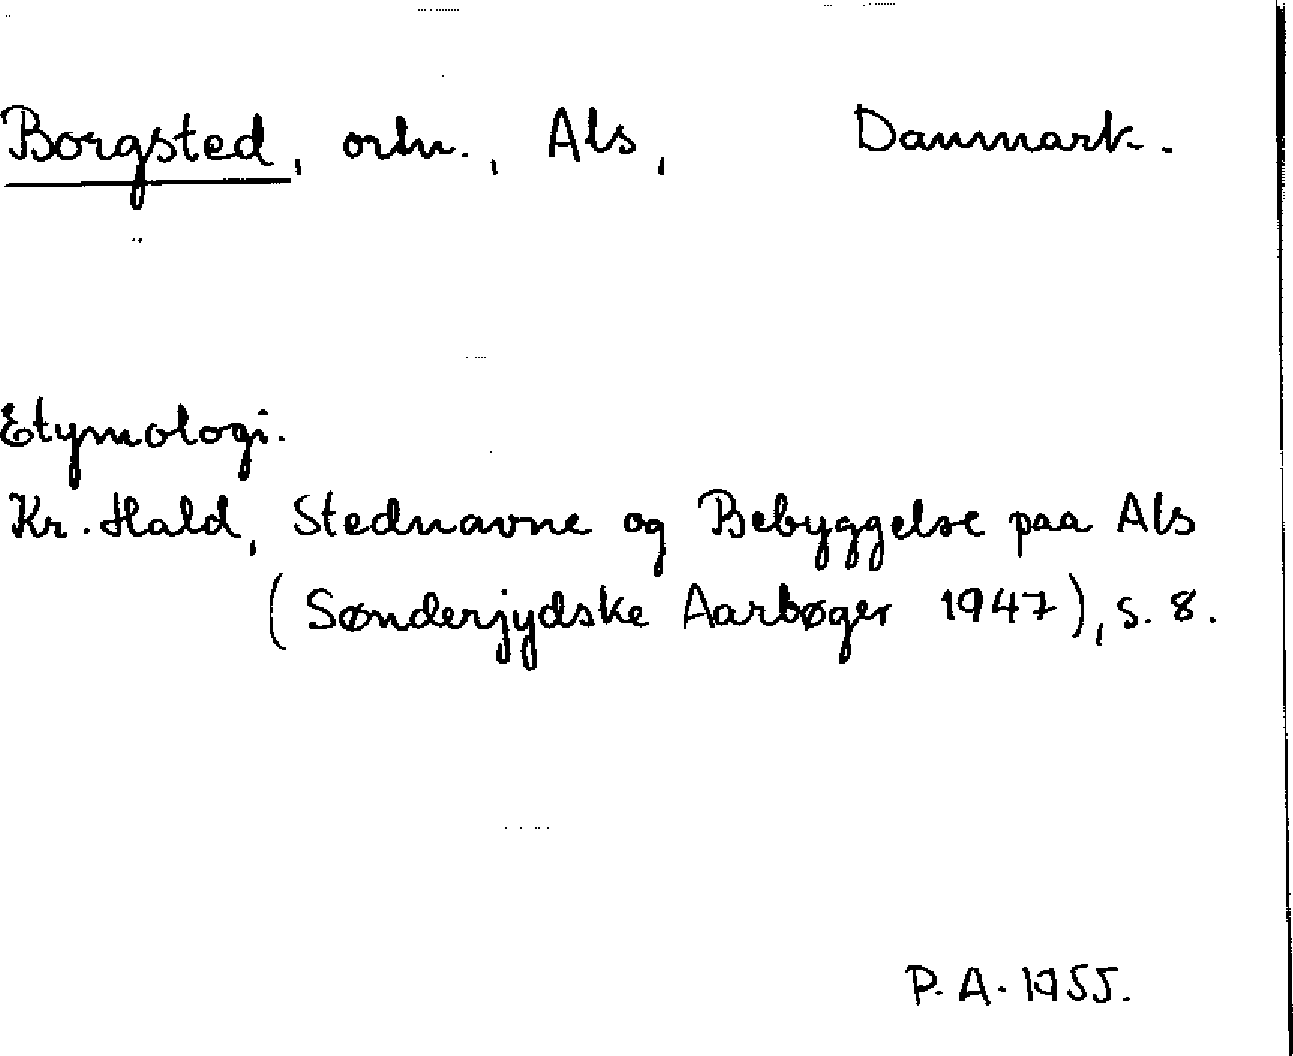 Borgsted, ortn., Als, Danmark.
Etymologi.
Kr. Hald, Stednavne og Bebyggelse paa Als
(Sønderjydske Aarbøger 1947), s. 8.
P. A. 1955.